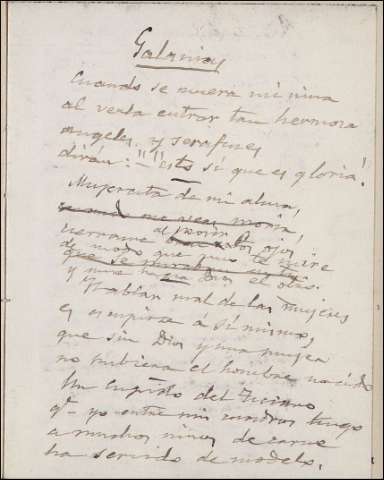 Galanias
Cuando se muera mi niña
al verla entrar tan hermosa
angeles y serafines
dirán: - "¡esto sí que es gloria!
Mujercita de mi alma,
me veas morir,
cierrame al morir los ojos
de modo que uno te mire
que se miraban en ti
y mire hacia Dios el otro.
Hablar mal de las mujeres
es escupirse á sí mismo,
que sin Dios y una mujer
no hubiera el hombre nacido
Un Cupido del Ticiano
qe. yo entre mis cuadros tengo
a muchos niños de carne
ha servido de modelo.